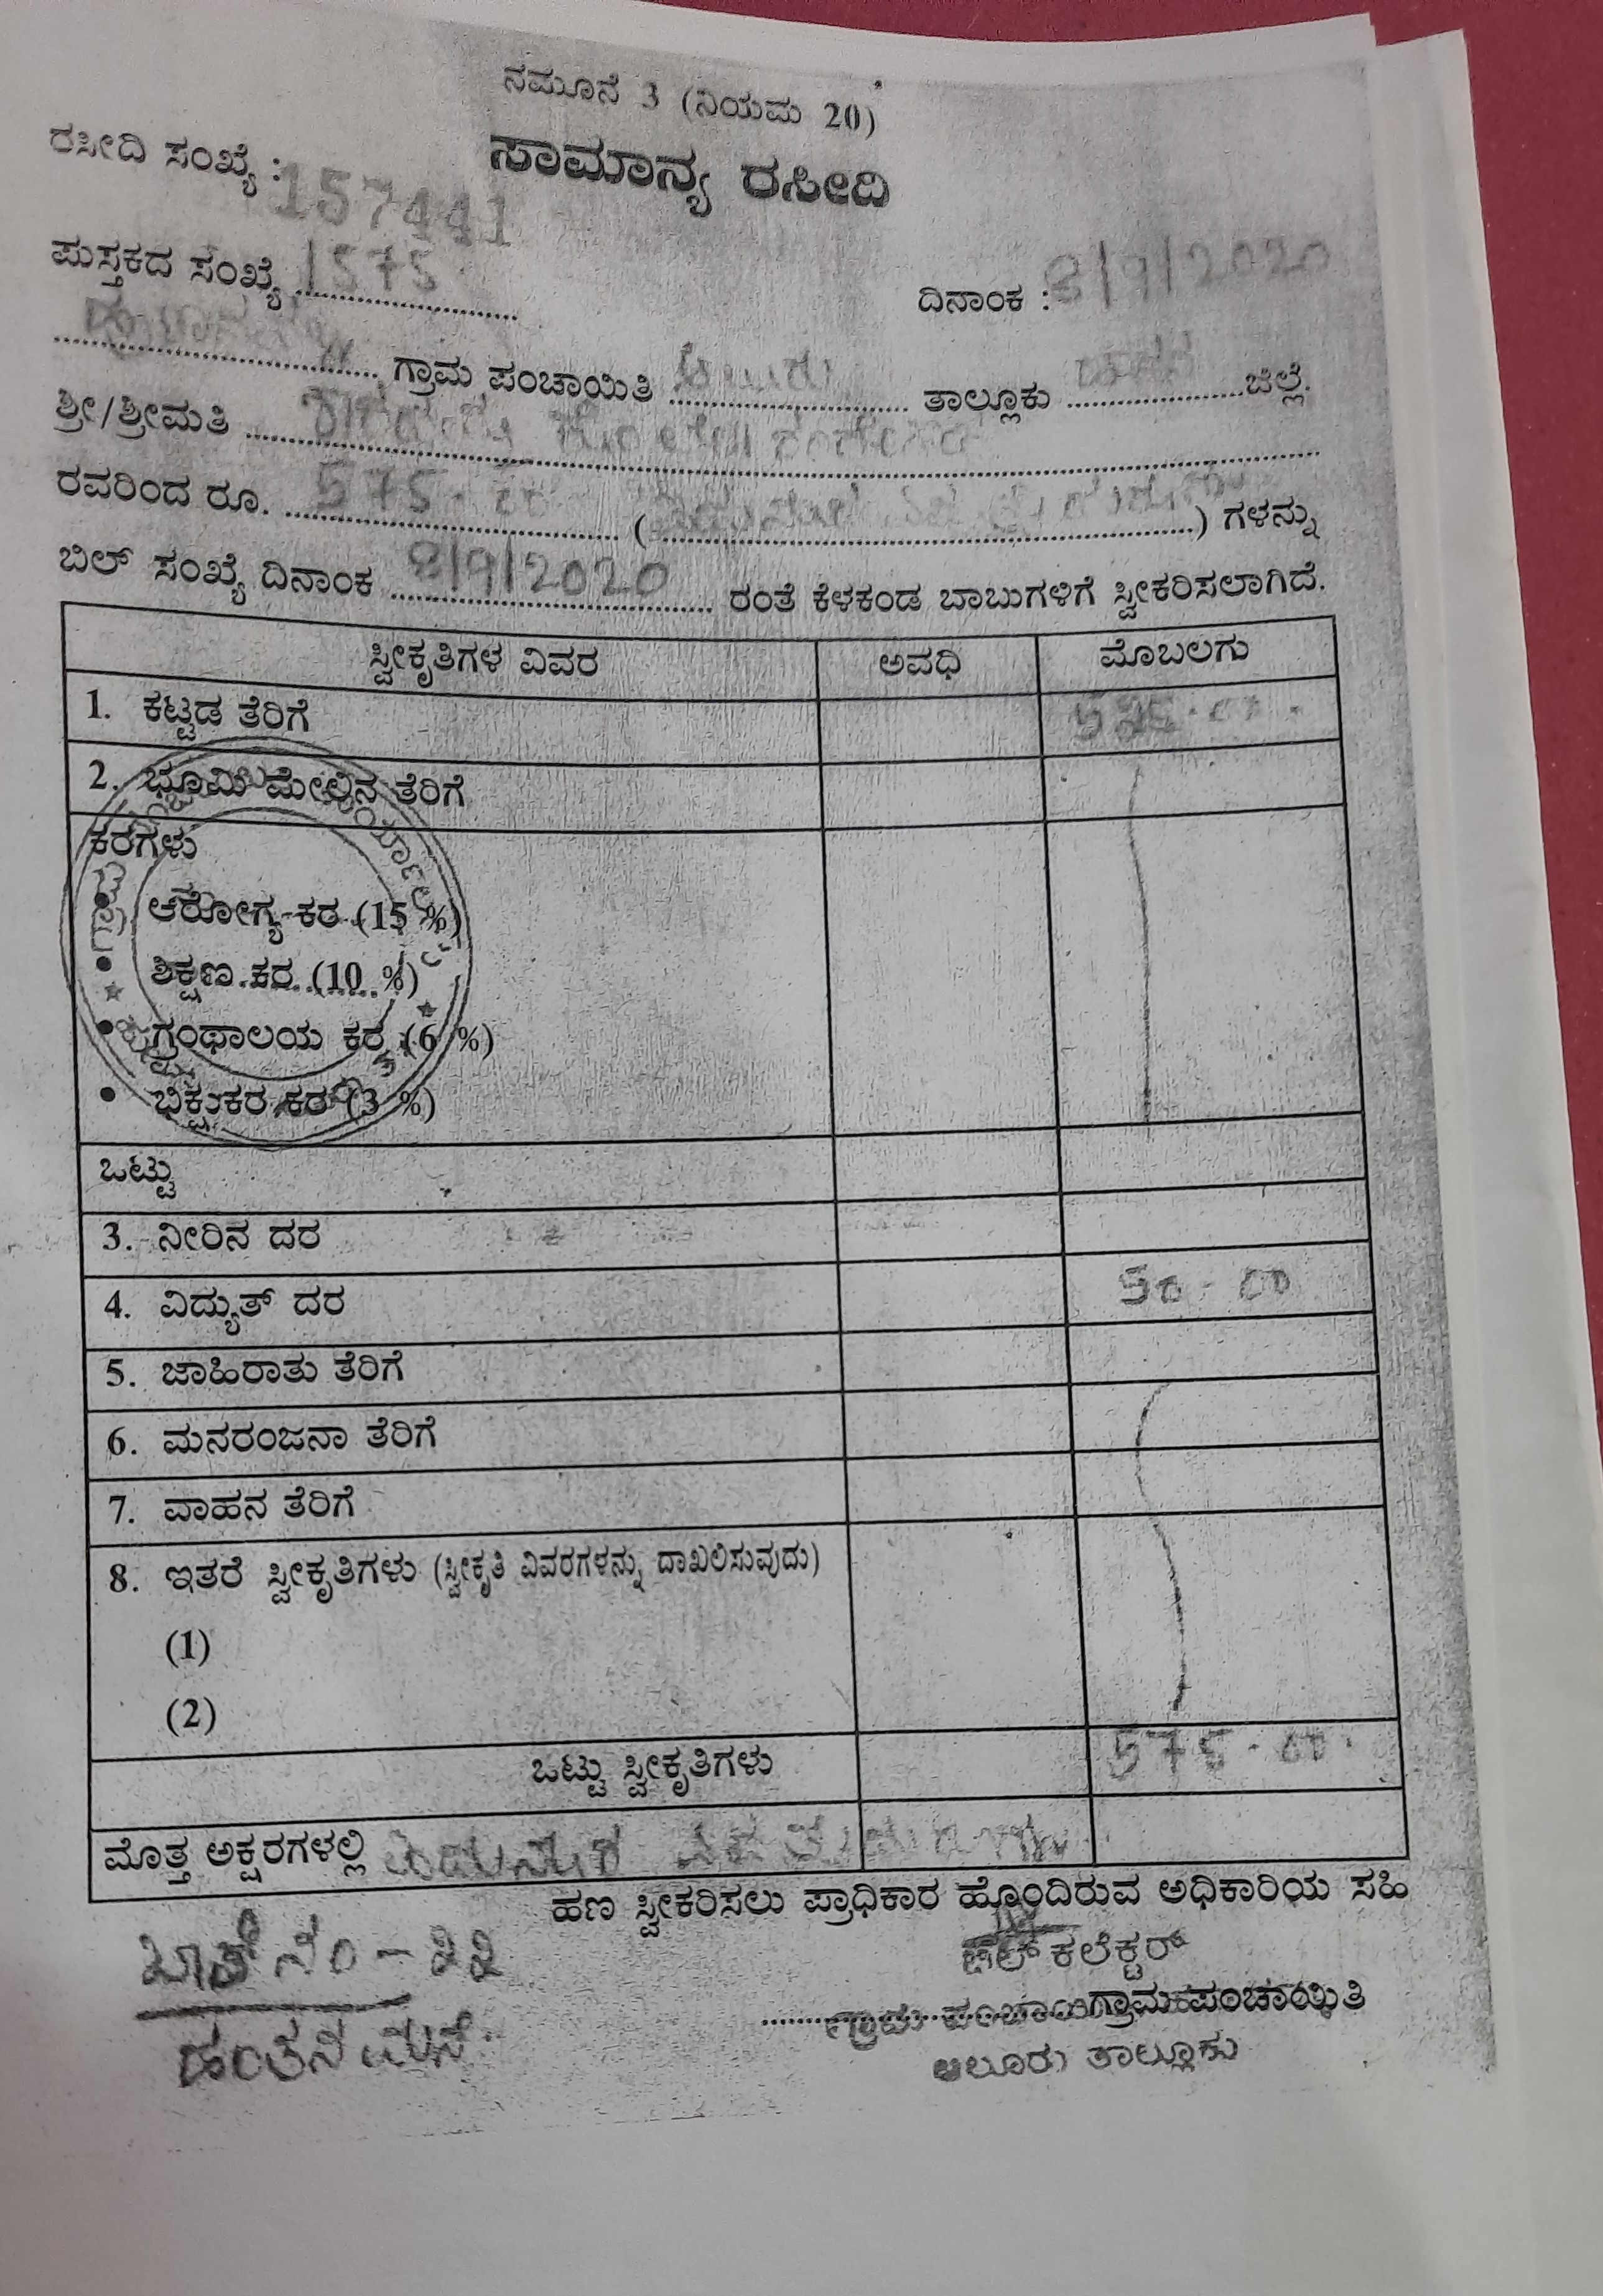 ನಮೂನೆ 3 (ನಿಯಮ 20)
ಸಾಮಾನ್ಯ ರಸೀದಿ
ರಸೀದಿ ಸಂಖ್ಯೆ : 157441
ಪುಸ್ತಕದ ಸಂಖ್ಯೆ 1575
ದಿನಾಂಕ : 8/9/2020
ಗ್ರಾಮ ಪಂಚಾಯಿತಿ ಆಲೂರು ತಾಲ್ಲೂಕು ಹಾಸನ ಜಿಲ್ಲೆ.
ಶ್ರೀ/ಶ್ರೀಮತಿ
ರವರಿಂದ ರೂ. 575-00 ( ) ಗಳನ್ನು
ಬಿಲ್ ಸಂಖ್ಯೆ ದಿನಾಂಕ 8/9/2020 ರಂತೆ ಕೆಳಕಂಡ ಬಾಬುಗಳಿಗೆ ಸ್ವೀಕರಿಸಲಾಗಿದೆ.
ಸ್ವೀಕೃತಿಗಳ ವಿವರ ಅವಧಿ ಮೊಬಲಗು
1. ಕಟ್ಟಡ ತೆರಿಗೆ
2. ಭೂಮಿ ಮೇಲಿನ ತೆರಿಗೆ
ಕರಗಳು
• ಆರೋಗ್ಯ ಕರ (15 %)
• ಶಿಕ್ಷಣ ಕರ (10 %)
• ಗ್ರಂಥಾಲಯ ಕರ (6 %)
• ಭಿಕ್ಷುಕರ ಕರ (3 %)
ಒಟ್ಟು
3. ನೀರಿನ ದರ
4. ವಿದ್ಯುತ್ ದರ 50-00
5. ಜಾಹಿರಾತು ತೆರಿಗೆ
6. ಮನರಂಜನಾ ತೆರಿಗೆ
7. ವಾಹನ ತೆರಿಗೆ
8. ಇತರೆ ಸ್ವೀಕೃತಿಗಳು (ಸ್ವೀಕೃತಿ ವಿವರಗಳನ್ನು ದಾಖಲಿಸುವುದು)
(1)
(2)
ಒಟ್ಟು ಸ್ವೀಕೃತಿಗಳು 575-00
ಮೊತ್ತ ಅಕ್ಷರಗಳಲ್ಲಿ
ಹಣ ಸ್ವೀಕರಿಸಲು ಪ್ರಾಧಿಕಾರ ಹೊಂದಿರುವ ಅಧಿಕಾರಿಯ ಸಹಿ
ಬಿಲ್ ಕಲೆಕ್ಟರ್
ಗ್ರಾಮ ಪಂಚಾಯಿತಿ
ಆಲೂರು ತಾಲ್ಲೂಕು
ಹಂಚಿನ ಮನೆ